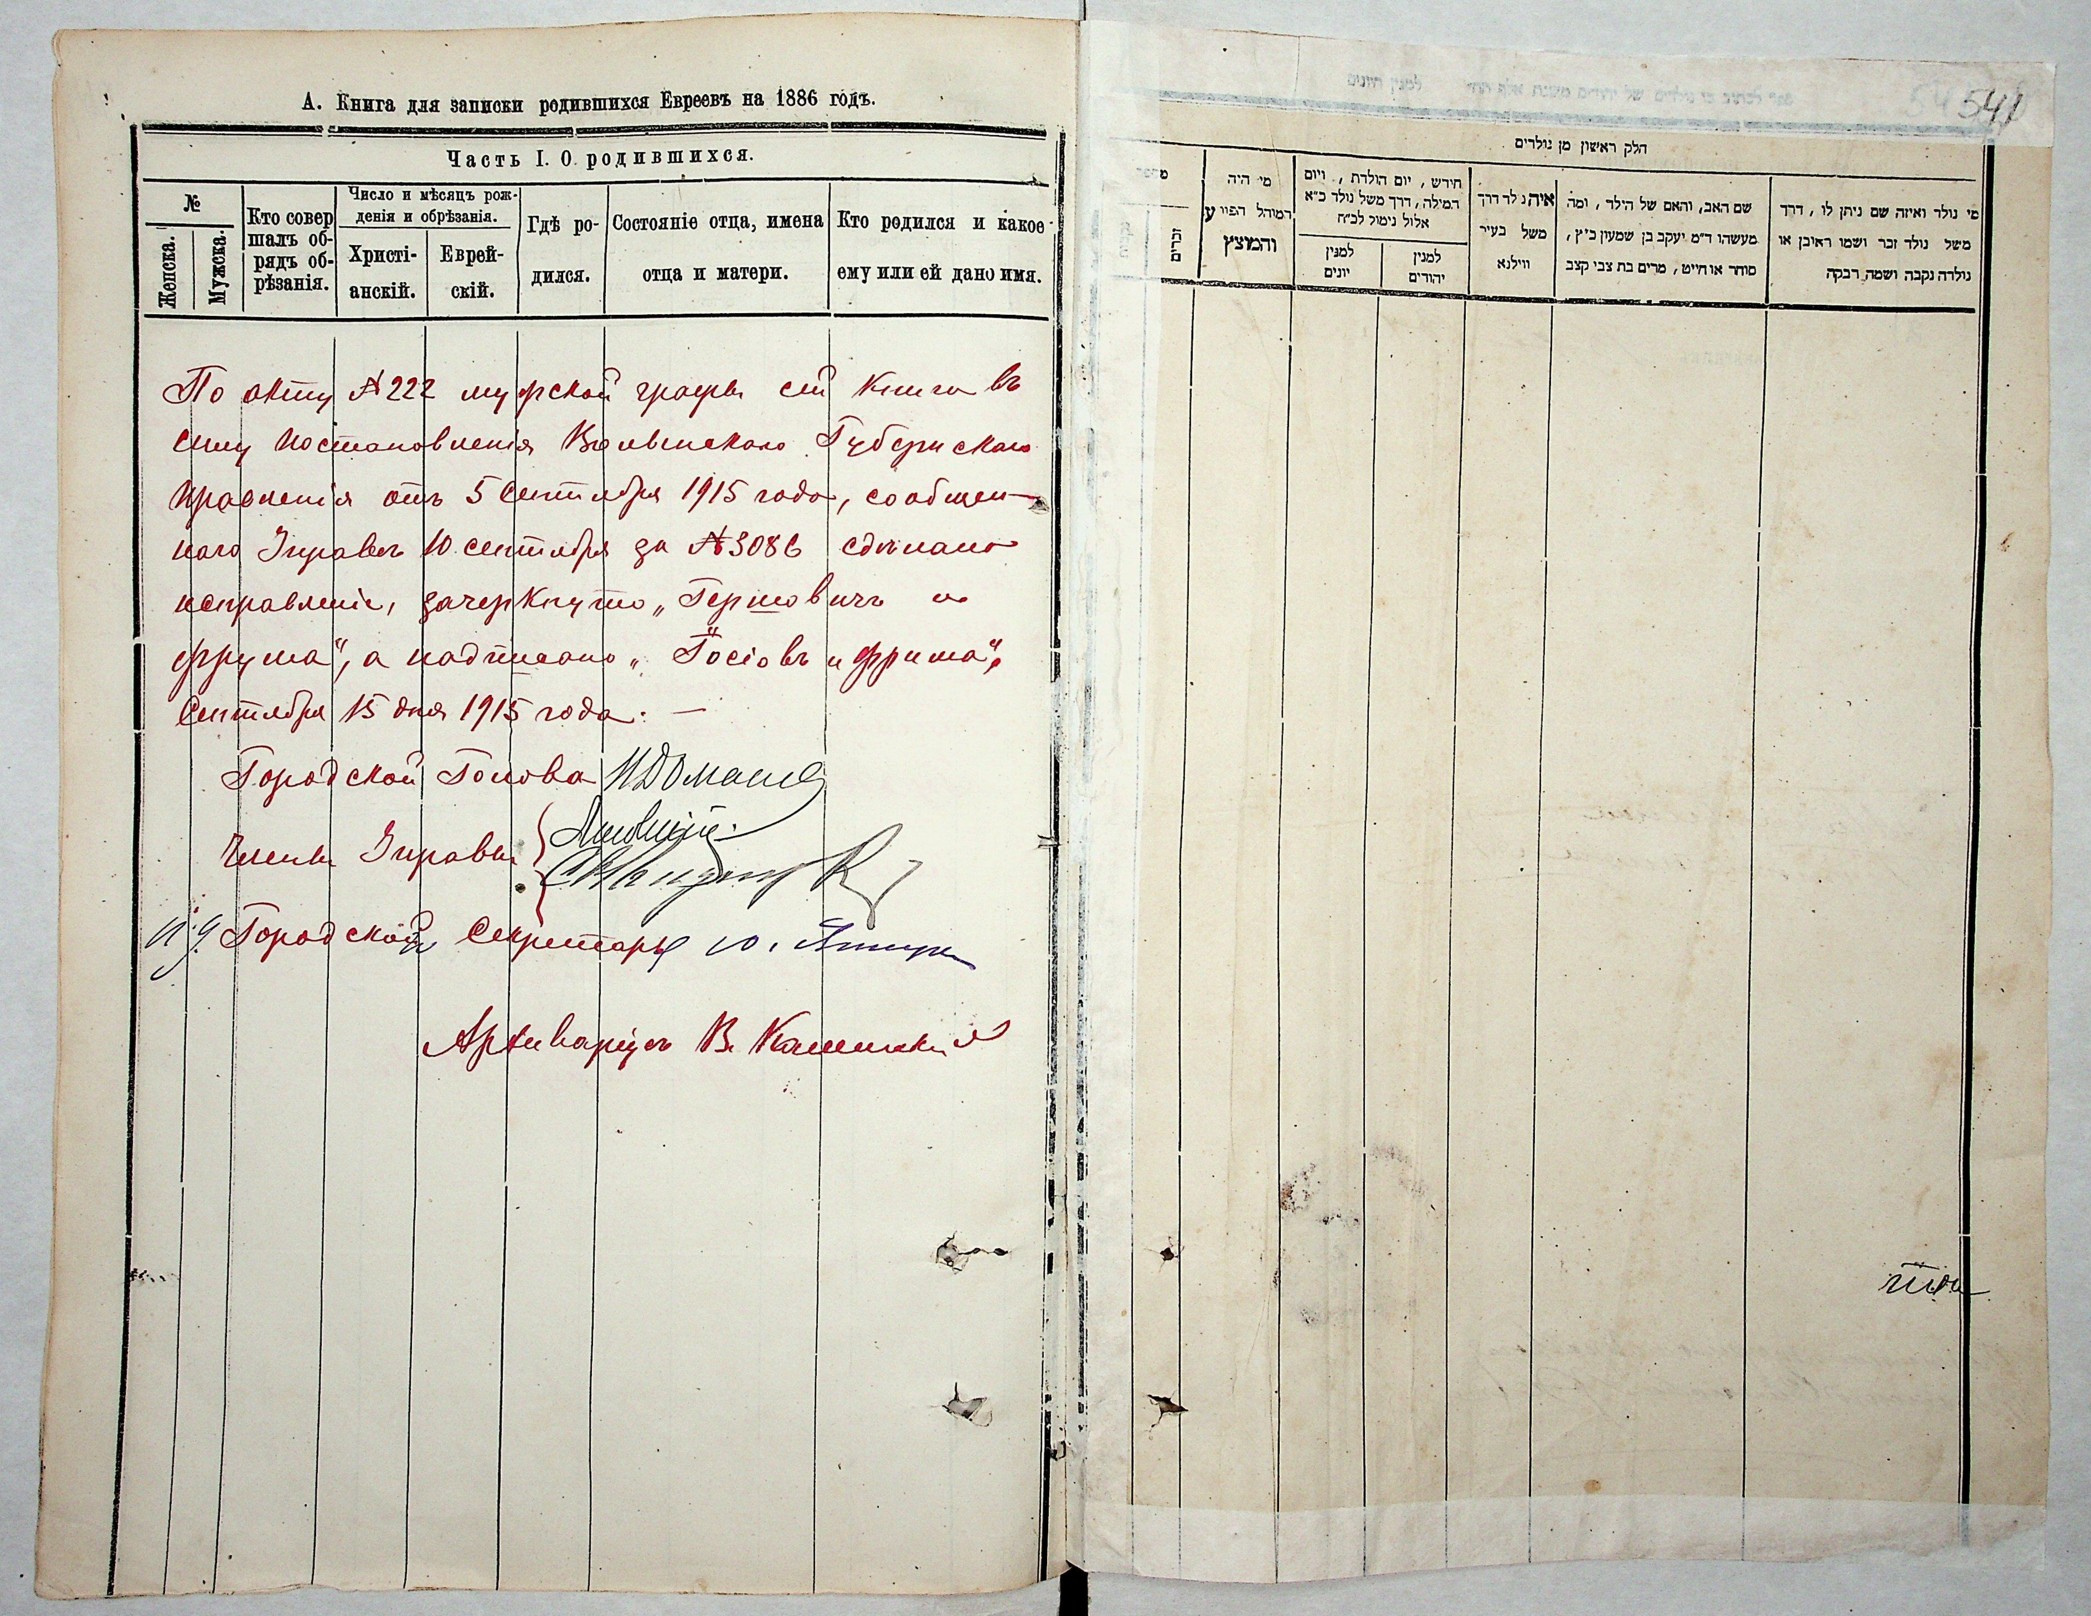 А. Книга для записки родившихся Евреевъ на 1886 годъ.
Часть I. О родившихся.
№
Женска.
Мужска.
Кто совер
шалъ об-
рядъ об-
рѣзанія.
Число и мѣсяцъ рож-
денія и обрѣзанія.
Христі-
анскій.
Еврей-
скій.
Гдѣ ро-
дился.
Состояніе отца, имена
отца и матери.
Кто родился и какое
ему или ей дано имя.
По акту №222 мужской графы сей книги въ
силу постановленія Волынскаго Губернскаго
Правленія отъ 5 Сентября 1915 года, сообщен-
наго Управѣ 10 сентября за №3086 сдѣлано
исправленіе, зачеркнуто „Гершовичъ и
фрума", а надписано „Іосіовъ и фрима".
Сентября 15 дня 1915 года. —
Городской Голова
Члены Управы
и. д. Городского Секретаря
Архиваріусъ В.
541
חלק ראשון מן נולדים
מי נולד ואיזה שם ניתן לו , דרך
משל נולד זכר ושמו ראובן או
נולדה נקבה ושמה רבקה
שם האב, והאם של הילד , ומה
מעשהו ד"מ יעקב בן שמעון כ"ץ,
סוחר או חייט, מרים בת צבי קצב
איה נלד דרך
משל בעיר
ווילנא
חודש , יום הולדת , ויום
המילה, דרך משל נולד כ"א
אלול נימול לכ"ח
למנין
יהודים
למנין
יונים
מי היה
המוהל הפורע
והמוצץ
מספר
זכרים